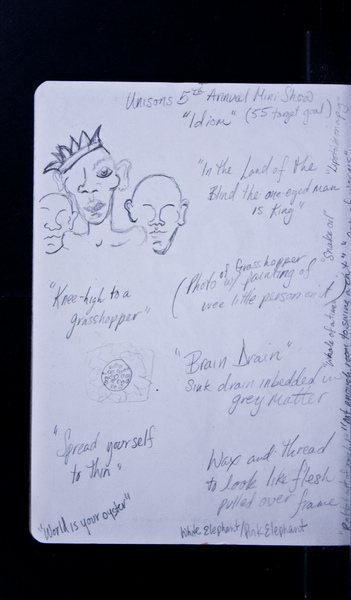 Unisons 5th Annual Mini Show
"Idiom" (55 target goal)
"In the Land of the
Blind the one-eyed man
is King"
"Knee-high to a
grasshopper"
(Photo of Grasshopper
w/ painting of
wee little person on it
"Brain Drain"
Sink drain inbedded in
grey matter
"Spread yourself
to thin"
Wax and thread
to look like flesh
pulled over frame
"World is your oyster"
White Elephant/Pink Elephant
"Snake oil"
"Whole of a time"
"Not enough room to swing a cat"